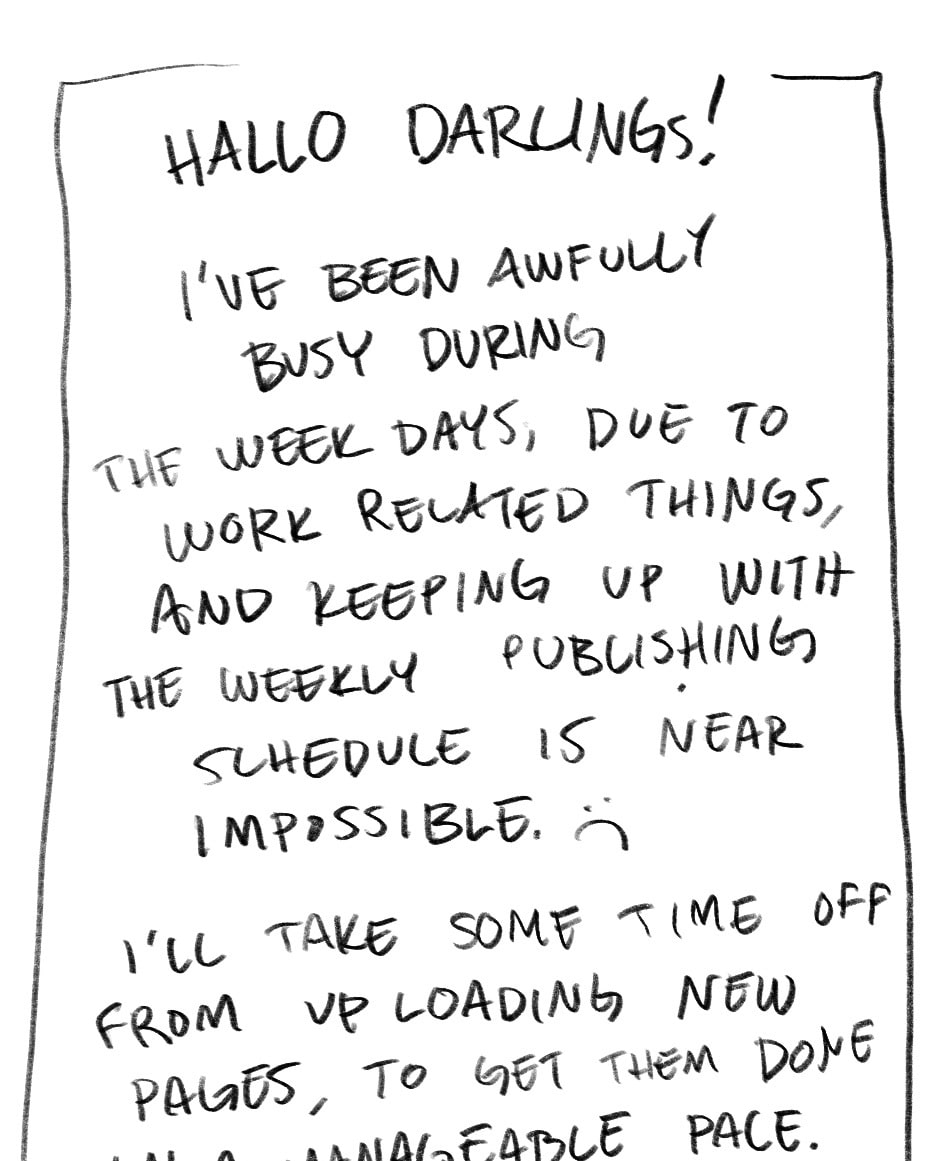 HALLO DARLINGS!
I'VE BEEN AWFULLY
BUSY DURING
THE WEEK DAYS, DUE TO
WORK RELATED THINGS,
AND KEEPING UP WITH
THE WEEKLY PUBLISHING
SCHEDULE IS NEAR
IMPOSSIBLE. :(
I'LL TAKE SOME TIME OFF
FROM UPLOADING NEW
PAGES, TO GET THEM DONE
IN A MANAGEABLE PACE.